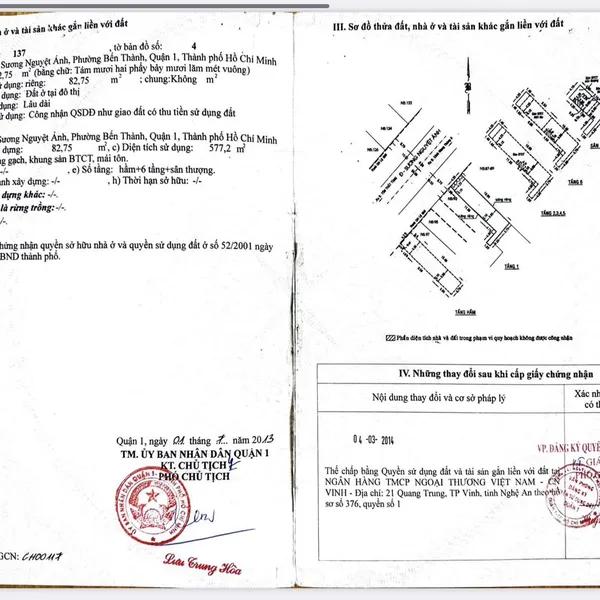 à ở và tài sản khác gắn liền với đất
137 , tờ bản đồ số: 4
Sương Nguyệt Ánh, Phường Bến Thành, Quận 1, Thành phố Hồ Chí Minh
2,75 m² (bằng chữ: Tám mươi hai phẩy bảy mươi lăm mét vuông)
ử dụng: riêng: 82,75 m² ; chung: Không m²
dụng: Đất ở tại đô thị
dụng: Lâu dài
sử dụng: Công nhận QSDĐ như giao đất có thu tiền sử dụng đất
Sương Nguyệt Ánh, Phường Bến Thành, Quận 1, Thành phố Hồ Chí Minh
dụng: 82,75 m², c) Diện tích sàn: 577,2 m²
g gạch, khung sàn BTCT, mái tôn.
-/- , e) Số tầng: hầm+6 tầng+sân thượng.
nh xây dựng: -/- , h) Thời hạn sở hữu: -/-
dựng khác: -/-
là rừng trồng: -/-
-/-.
hứng nhận quyền sở hữu nhà ở và quyền sử dụng đất ở số 52/2001 ngày
BND thành phố.
Quận 1, ngày 01 tháng 7 năm 2013
TM. ỦY BAN NHÂN DÂN QUẬN 1
KT. CHỦ TỊCH
PHÓ CHỦ TỊCH
Lưu Trung Hòa
GCN: CH00117
III. Sơ đồ thửa đất, nhà ở và tài sản khác gắn liền với đất
Đ - SƯƠNG NGUYỆT ÁNH
TẦNG 6
TẦNG 2,3,4,5
TẦNG 1
TẦNG HẦM
Phần diện tích nhà và đất trong phạm vi quy hoạch không được công nhận
IV. Những thay đổi sau khi cấp giấy chứng nhận
Nội dung thay đổi và cơ sở pháp lý
Xác nh
có th
04 -03- 2014
VP. ĐĂNG KÝ QUYỀN
Thế chấp bằng Quyền sử dụng đất và tài sản gắn liền với đất tại
NGÂN HÀNG TMCP NGOẠI THƯƠNG VIỆT NAM - C
VINH - Địa chỉ: 21 Quang Trung, TP Vinh, tỉnh Nghệ An theo
sơ số 376, quyển số 1